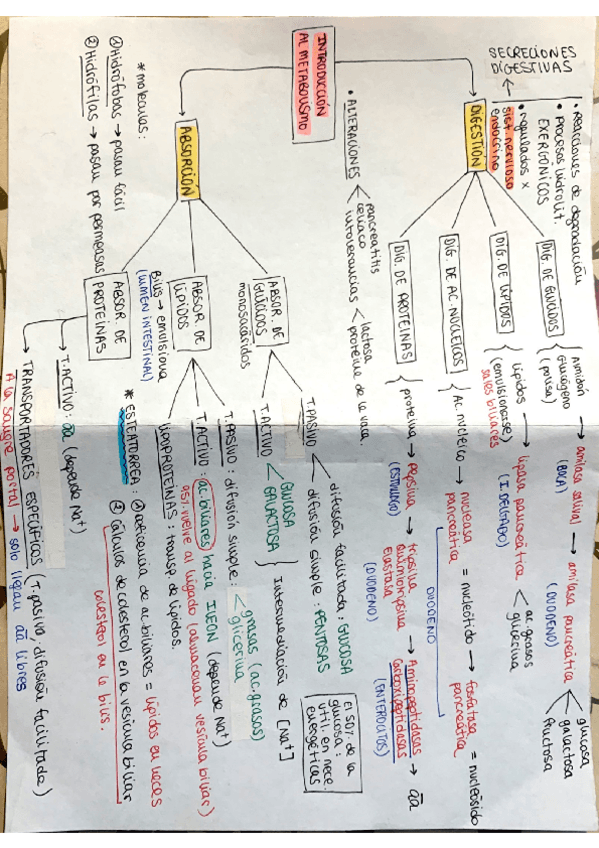 INTRODUCCIÓN
AL METABOLISMO
SECRECIONES
DIGESTIVAS
• Reacciones de degradación
• Procesos hidrolít.
EXERGÓNICOS
• regulados x
sist. nervioso
endocrino
DIGESTIÓN
DIG. DE GLÚCIDOS
Almidón
Glucógeno
(polisa)
→ amilasa salival → amilasa pancreática
(BOCA)
(DUODENO)
glucosa
galactosa
fructosa
DIG. DE LÍPIDOS
lípidos → lipasa pancreática
(emulsionarse)
sales biliares
(I. DELGADO)
ac. grasos
glicerina
DIG. DE AC. NUCLEICOS
Ac. nucleico → nucleasa = nucleótido → fosfatasa = nucleósido
pancreática
pancreática
DUODENO
DIG. DE PROTEÍNAS
proteína → pepsina → tripsina → Aminopeptidasas → aa
(ESTÓMAGO)
Quimiotripsina
Carboxipeptidasas
Elastasa
(DUODENO)
(ENTEROCITOS)
• ALTERACIONES
pancreatitis
celíaco
intolerancias
lactosa
proteína de la vaca.
ABSORCIÓN
ABSOR. DE
GLÚCIDOS
monosacáridos
T.PASIVO
difusión facilitada: GLUCOSA
difusión simple: PENTOSAS
El 50% de la
glucosa:
util. en nece.
energéticas
T.ACTIVO
GLUCOSA
GALACTOSA
Intermediación de [Na⁺]
ABSOR DE
LÍPIDOS
Bilis → emulsiona
(LUMEN INTESTINAL)
T.PASIVO: difusión simple:
grasas (ac. grasos)
glicerina
T.ACTIVO: ac. biliares hacia ILEON (depende Na⁺)
así vuelve al hígado (almacenan vesícula biliar)
LIPOPROTEÍNAS: transp. de lípidos.
* ESTEATORREA: ① Deficiencia de ac. biliares = lípidos en heces
② Cálculos de colesterol en la vesícula biliar
colesterol en la bilis.
* moléculas:
① Hidrófobas → pasan fácil
② Hidrófilas → pasan por permeasas
ABSOR DE
PROTEÍNAS
T.ACTIVO: aa (depende Na⁺)
TRANSPORTADORES ESPECÍFICOS (T. pasivo, difusión facilitada)
A la sangre portal → solo llegan aa libres